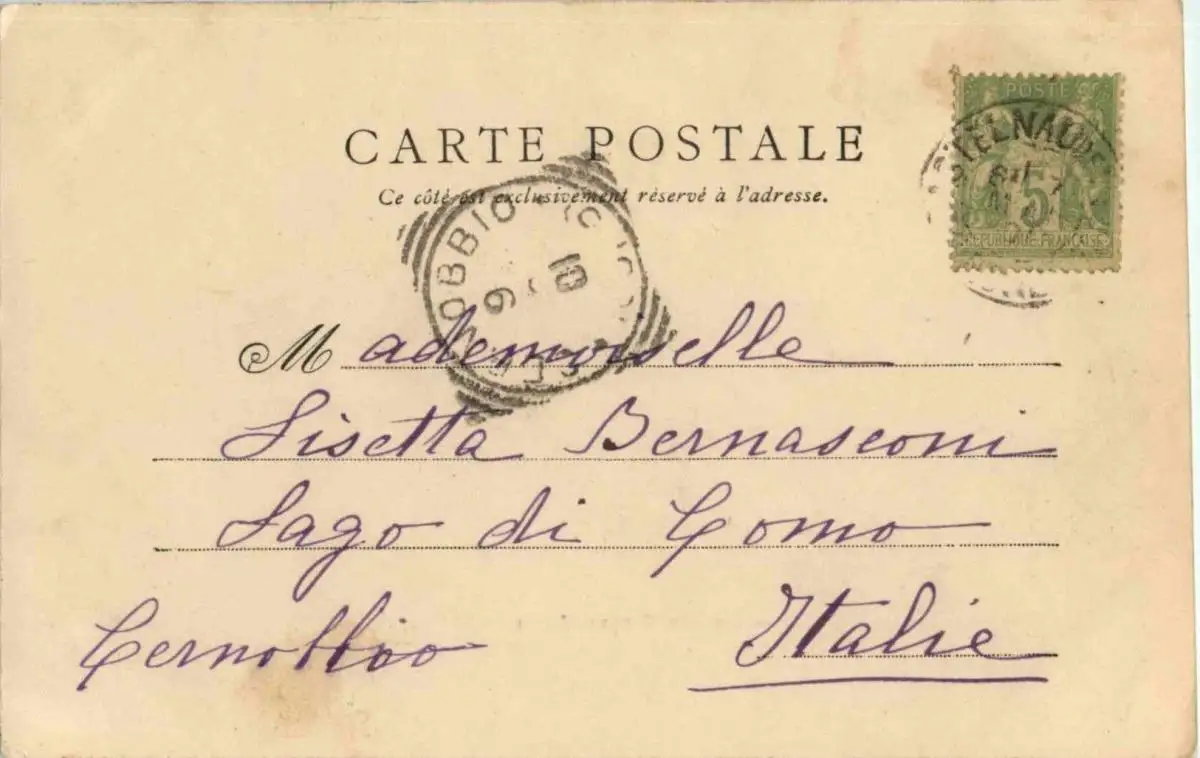 CARTE POSTALE
Ce côté est exclusivement réservé à l'adresse.
POSTES
5
REPUBLIQUE FRANÇAISE
10
9
Mademoiselle
Lisetta Bernasconi
Lago di Como
Cernobbio Italie